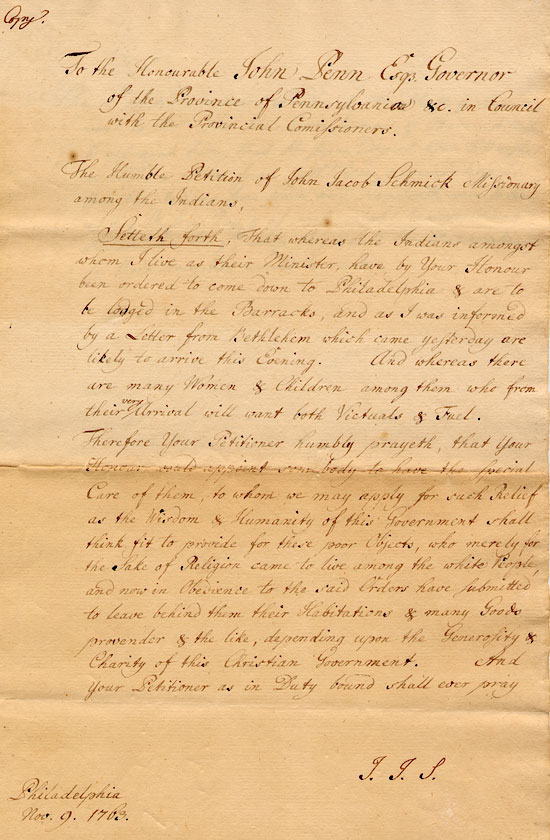 Copy.
To the Honourable John Penn Esq. Governor
of the Province of Pennsylvania &c. in Council
with the Provincial Comissioners.
The Humble Petition of John Jacob Schmick Missionary
among the Indians,
Setteth forth, That whereas the Indians amongst
whom I live as their Minister, have by Your Honour
been ordered to come down to Philadelphia & are to
be lodged in the Barracks, and as I was informed
by a Letter from Bethlehem which came yesterday are
likely to arrive this Evening. And whereas there
are many Women & Children among them who from
their very Arrival will want both Victuals & Fuel.
Therefore Your Petitioner humbly prayeth, that Your
Honour would appoint some body to have the special
Care of them, to whom we may apply for such Relief
as the Wisdom & Humanity of this Government shall
think fit to provide for these poor Objects, who merely for
the Sake of Religion came to live among the white People,
and now in Obedience to the said Orders have submitted
to leave behind them their Habitations & many Goods
provender & the like, depending upon the Generosity &
Charity of this Christian Government. And
Your Petitioner as in Duty bound shall ever pray
J. J. S.
Philadelphia
Nov. 9. 1763.